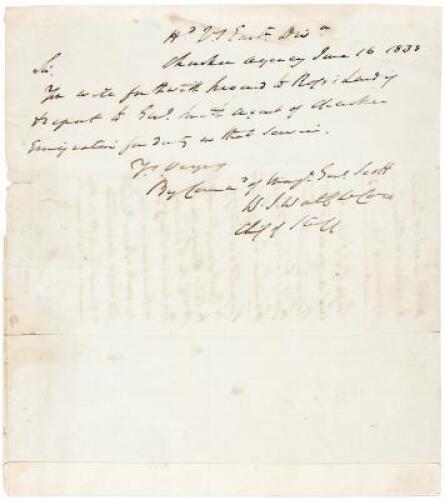 Hd Qrs Eastn Divn
Cherokee Agency June 16 1838
Sir,
You will forthwith proceed to Ross's Landing
& report to Genl Smith agent of Cherokee
Emigration for duty in that service.
By Command of Majr Genl Scott
W. J. Worth Lt Col
Chf of Staff